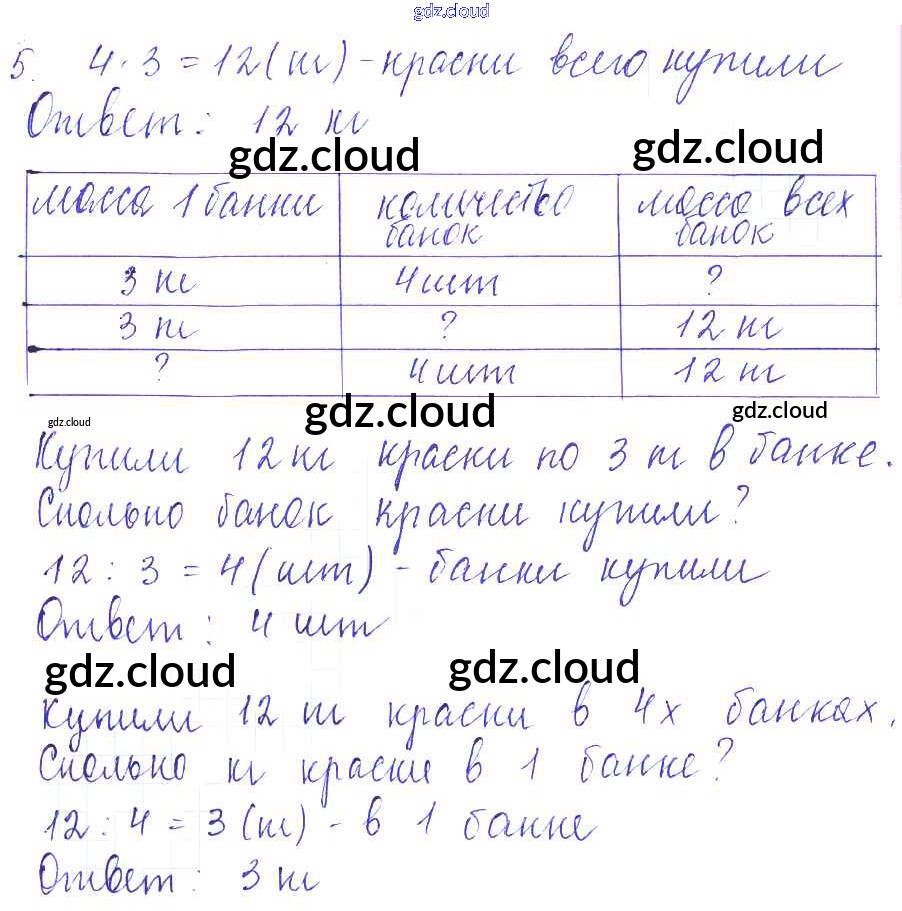 gdz.cloud
5. 4 · 3 = 12 (кг) - краски всего купили
Ответ: 12 кг
gdz.cloud gdz.cloud
масса 1 банки количество банок масса всех банок
3 кг 4 шт ?
3 кг ? 12 кг
? 4 шт 12 кг
gdz.cloud gdz.cloud gdz.cloud
Купили 12 кг краски по 3 кг в банке.
Сколько банок краски купили?
12 : 3 = 4 (шт) - банки купили
Ответ: 4 шт
gdz.cloud gdz.cloud
Купили 12 кг краски в 4х банках.
Сколько кг краски в 1 банке?
12 : 4 = 3 (кг) - в 1 банке
Ответ: 3 кг